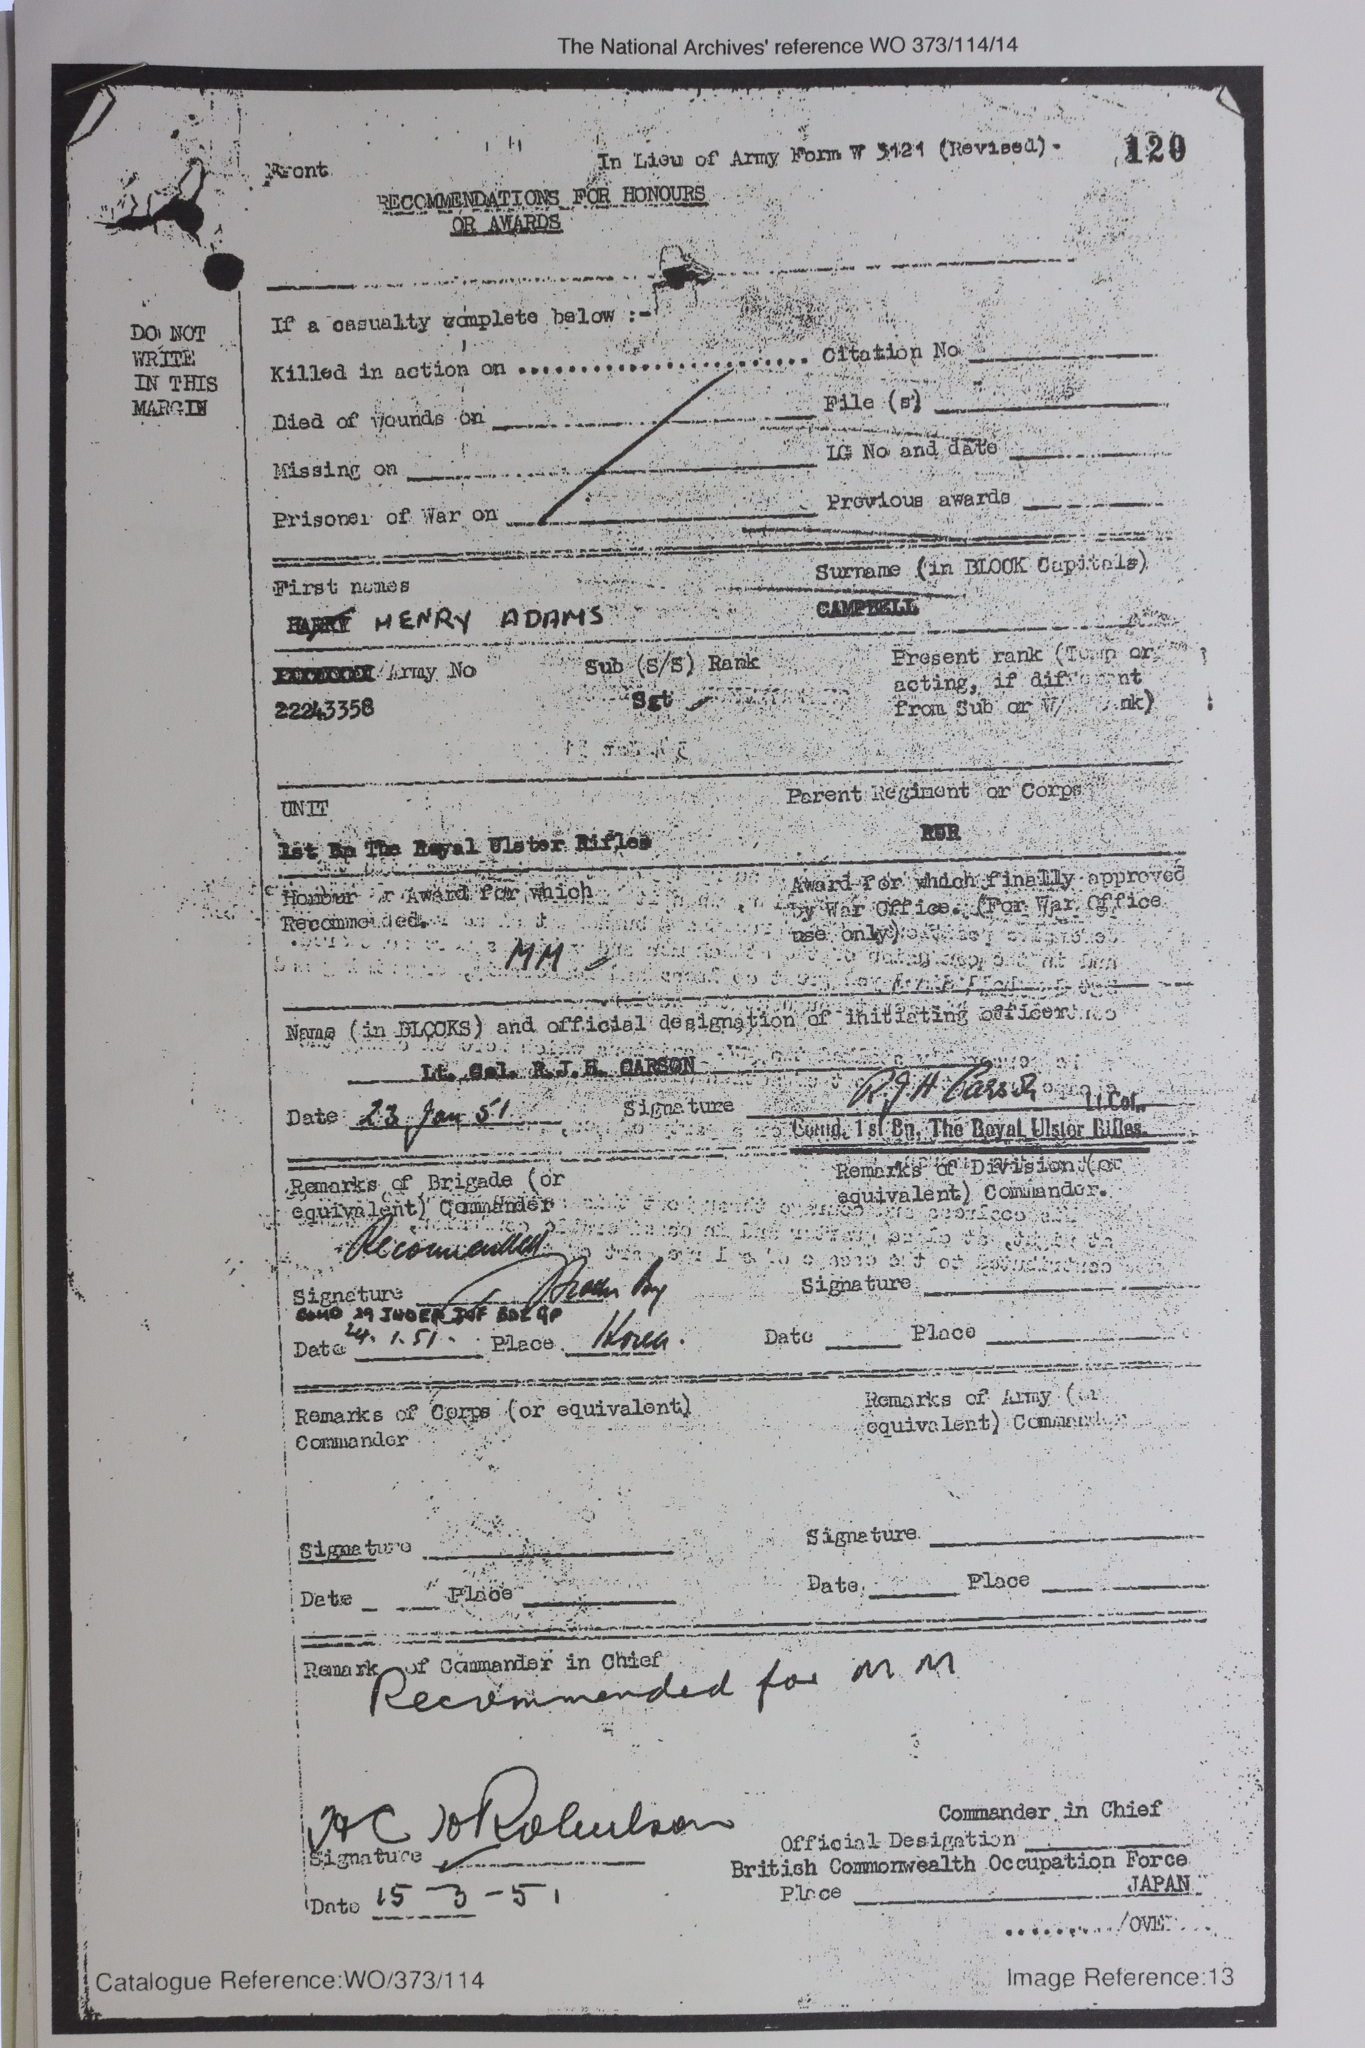 The National Archives' reference WO 373/114/14
120
Front
In Lieu of Army Form W 3121 (Revised).
RECOMMENDATIONS FOR HONOURS
OR AWARDS
DO NOT
WRITE
IN THIS
MARGIN
If a casualty complete below :-
Killed in action on
Citation No
Died of wounds on
File (s)
Missing on
LG No and date
Prisoner of War on
Previous awards
First names
Surname (in BLOCK Capitals)
HARRY HENRY ADAMS
CAMPBELL
Army No
Sub (S/S) Rank
Present rank (Temp or
acting, if different
from Sub or W/ nk)
22243358
Sgt
UNIT
Parent Regiment or Corps
1st Bn The Royal Ulster Rifles
RUR
Honour or Award for which
Recommended.
Award for which finally approved
by War Office. (For War Office
use only)
MM
Name (in BLOCKS) and official designation of initiating officer
Lt. Col. R.J.H. CARSON
Date 23 Jan 51
Signature R J H Carson
Lt Col.,
Comd. 1st Bn. The Royal Ulster Rifles.
Remarks of Brigade (or
equivalent) Commander
Remarks of Division (or
equivalent) Commander.
Recommended
Signature
Signature
COMD 29 INDEP INF BDE GP
Date 24.1.51. Place Korea.
Date Place
Remarks of Corps (or equivalent)
Commander
Remarks of Army (or
equivalent) Commander
Signature
Signature
Date Place
Date Place
Remark of Commander in Chief
Recommended for MM
H C H Robertson
Signature
Commander in Chief
Official Desigation
British Commonwealth Occupation Force
Place JAPAN
Date 15-3-51
........../OVE
Catalogue Reference:WO/373/114
Image Reference:13